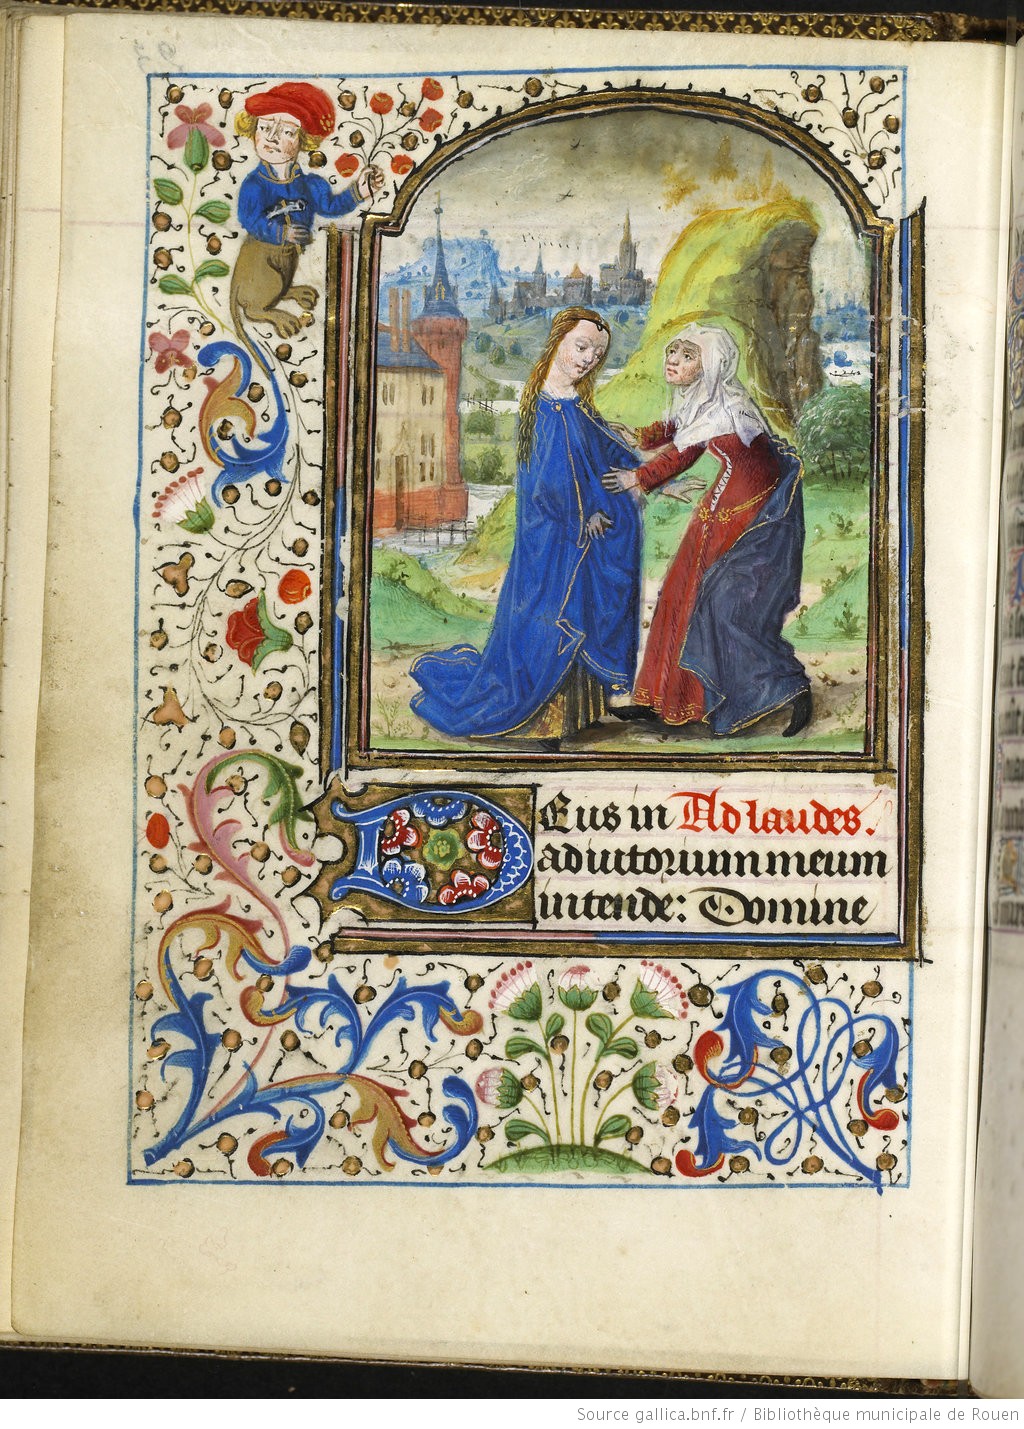 DEus in Ad laudes.
adiutorium meum
intende: Domine
Source gallica.bnf.fr / Bibliothèque municipale de Rouen